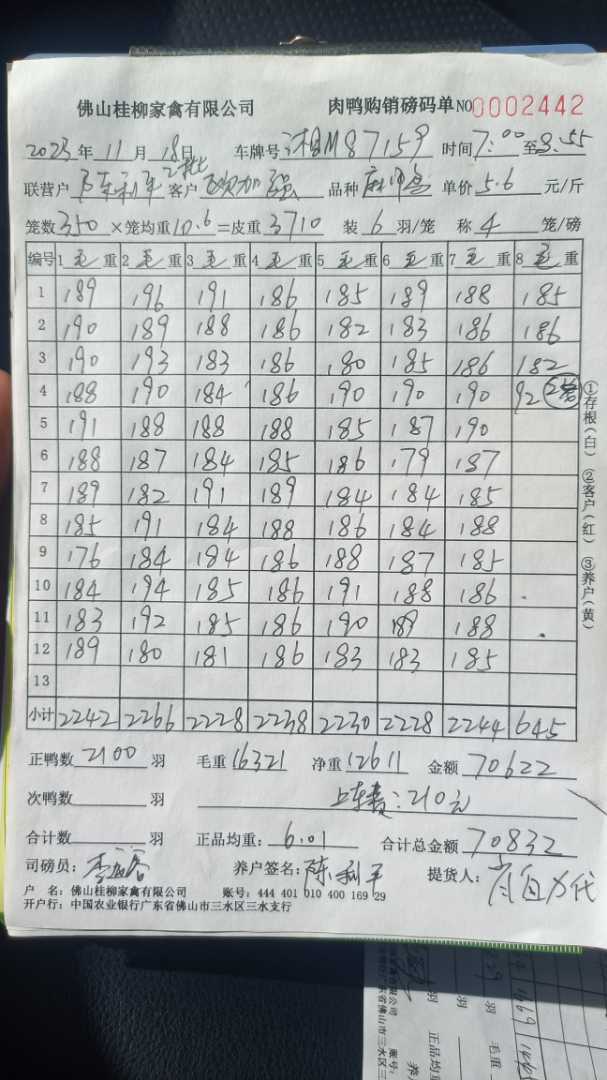 佛山桂柳家禽有限公司 肉鸭购销磅码单 NO0002442
2023年11月18日 车牌号 湘M87159 时间7:00至8:55
联营户 陈利平 2批 客户 欧加强 品种 单价5.6元/斤
笼数350×笼均重10.6=皮重3710 装6羽/笼 称4笼/磅
编号 1毛重 2毛重 3毛重 4毛重 5毛重 6毛重 7毛重 8毛重
1 189 196 191 186 185 189 188 185
2 190 189 188 186 182 183 186 186
3 190 193 183 186 180 185 186 182
4 188 190 184 186 190 190 190 92 2笼
5 191 188 188 188 185 187 190
6 188 187 184 185 186 179 187
7 189 182 191 189 184 184 185
8 185 191 184 188 186 184 188
9 176 184 184 186 188 187 185
10 184 194 185 186 191 188 186
11 183 192 185 186 190 189 188
12 189 180 181 186 183 183 185
13
小计 2242 2266 2228 2238 2230 2228 2244 645
①存根(白) ②客户(红) ③养户(黄)
正鸭数2100羽 毛重16321 净重12611 金额70622
次鸭数 羽 上车费:210元
合计数 羽 正品均重:6.01 合计总金额70832
司磅员: 养户签名:陈利平 提货人:
户 名:佛山桂柳家禽有限公司 账号:444 401 010 400 169 29
开户行:中国农业银行广东省佛山市三水区三水支行